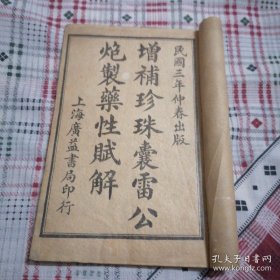 民國三年仲春出版
增補珍珠囊雷公
炮製藥性賦解
上海廣益書局印行
孔夫子旧书网